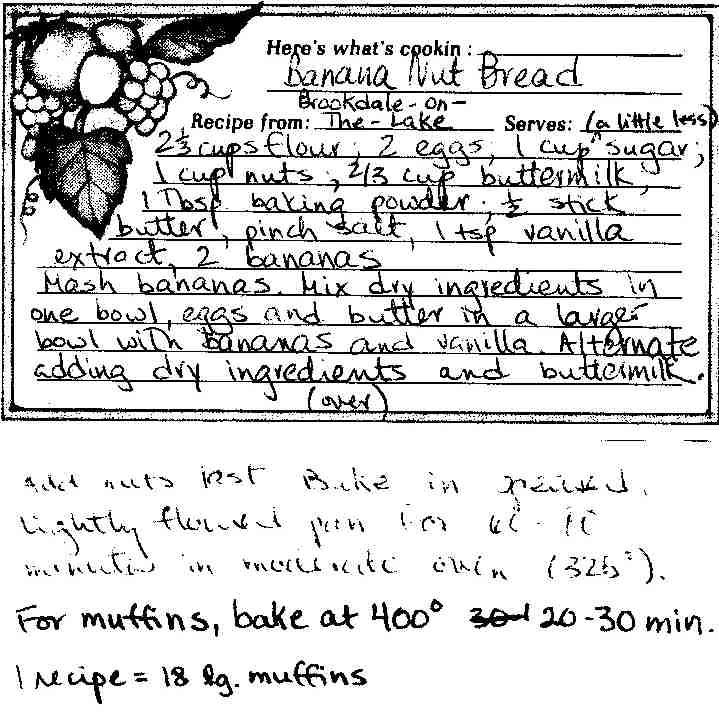 Here's what's cookin :
Banana Nut Bread
Brookdale-on-
Recipe from: The-Lake Serves: (a little less)
2⅓ cups flour, 2 eggs, 1 cup ^ sugar;
1 cup nuts; 2/3 cup buttermilk,
1 Tbsp baking powder, ½ stick
butter, pinch salt, 1 tsp vanilla
extract, 2 bananas
Mash bananas. Mix dry ingredients in
one bowl, eggs and butter in a larger
bowl with bananas and vanilla. Alternate
adding dry ingredients and buttermilk.
(over)
Add nuts last Bake in greased,
lightly floured pan for
minutes in moderate oven (325°).
For muffins, bake at 400° 20-30 min.
1 recipe = 18 lg. muffins